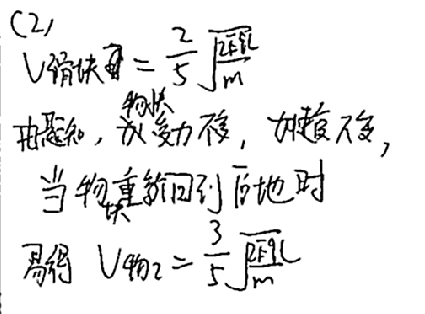 (2)
V滑块 = \frac{2}{5}\sqrt{\frac{2EqL}{m}}
由题知,物块受力不变,加速度不变,
当物块重新回到原地时
易得 V物2 = \frac{3}{5}\sqrt{\frac{2EqL}{m}}